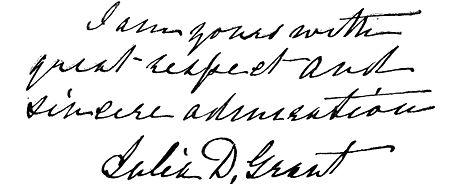 I am yours with
great respect and
sincere admiration
Julia D. Grant